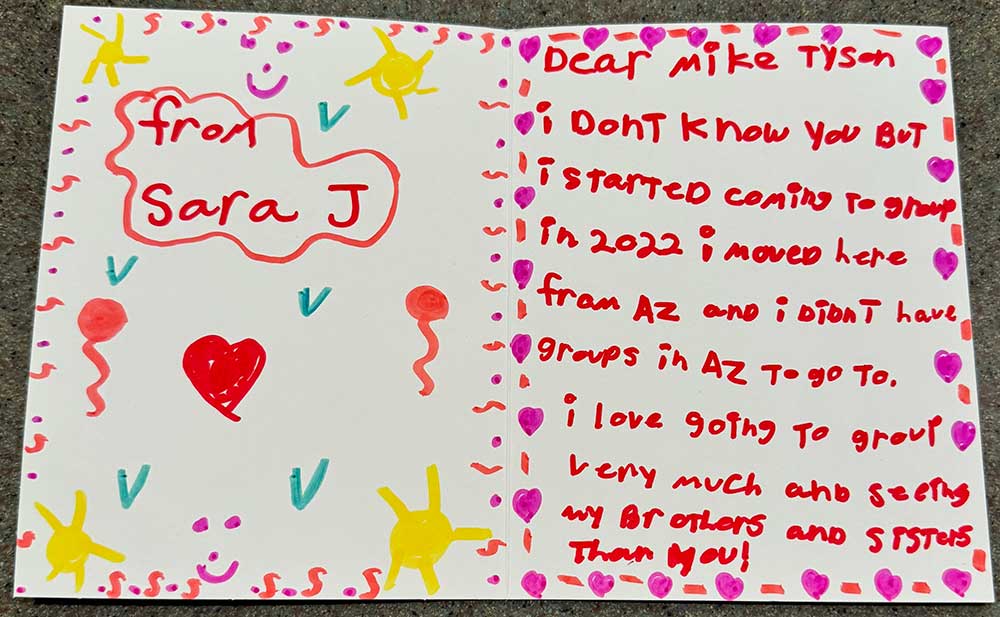 from
Sara J
Dear Mike Tyson
i DonT Know you BuT
i sTarTeD coming To group
in 2022 i moveD here
from AZ and i DiDnT have
groups in AZ To go To.
i love going To group
very much and seeing
my BroThers and sisTers
Than you!